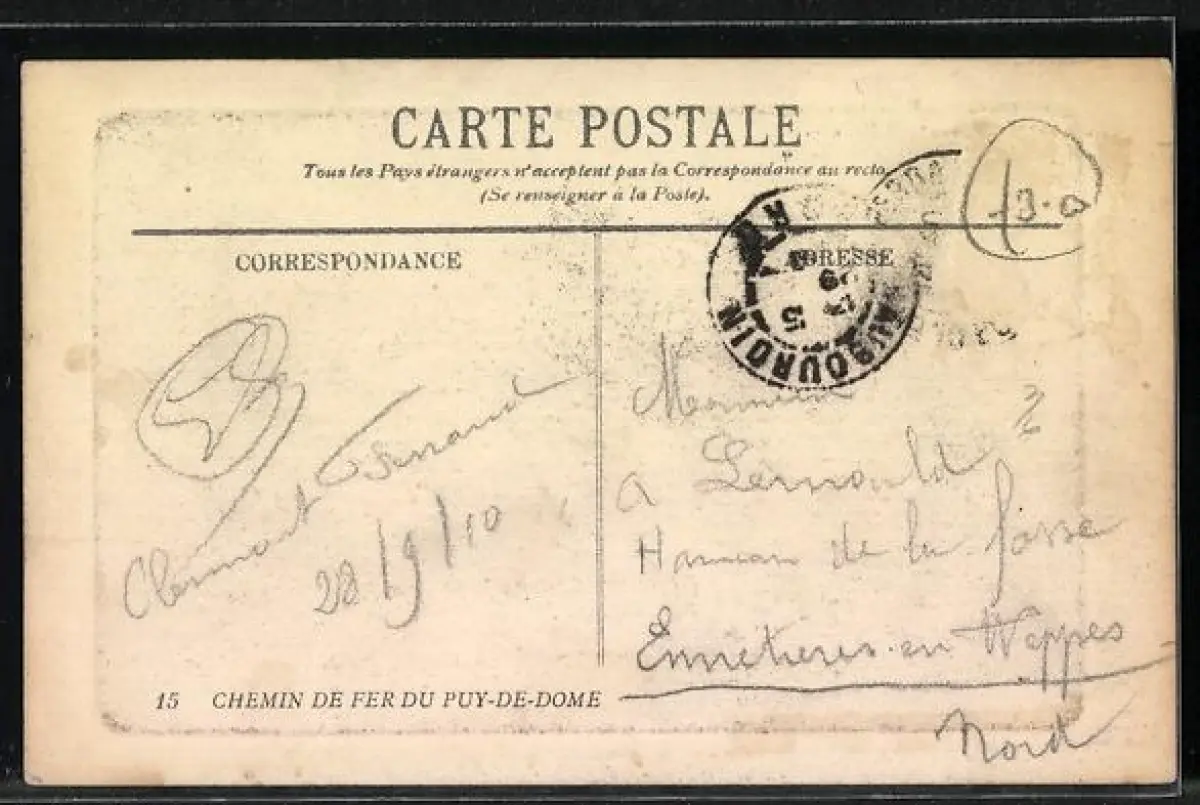 CARTE POSTALE
Tous les Pays étrangers n'acceptent pas la Correspondance au recto
(Se renseigner à la Poste).
CORRESPONDANCE
ADRESSE
HAUBOURDIN
Fernand
Clermont
28/9/10
Monsieur
A Lernould
Hameau de la fosse
Ennetières-en Weppes
Nord
15 CHEMIN DE FER DU PUY-DE-DOME